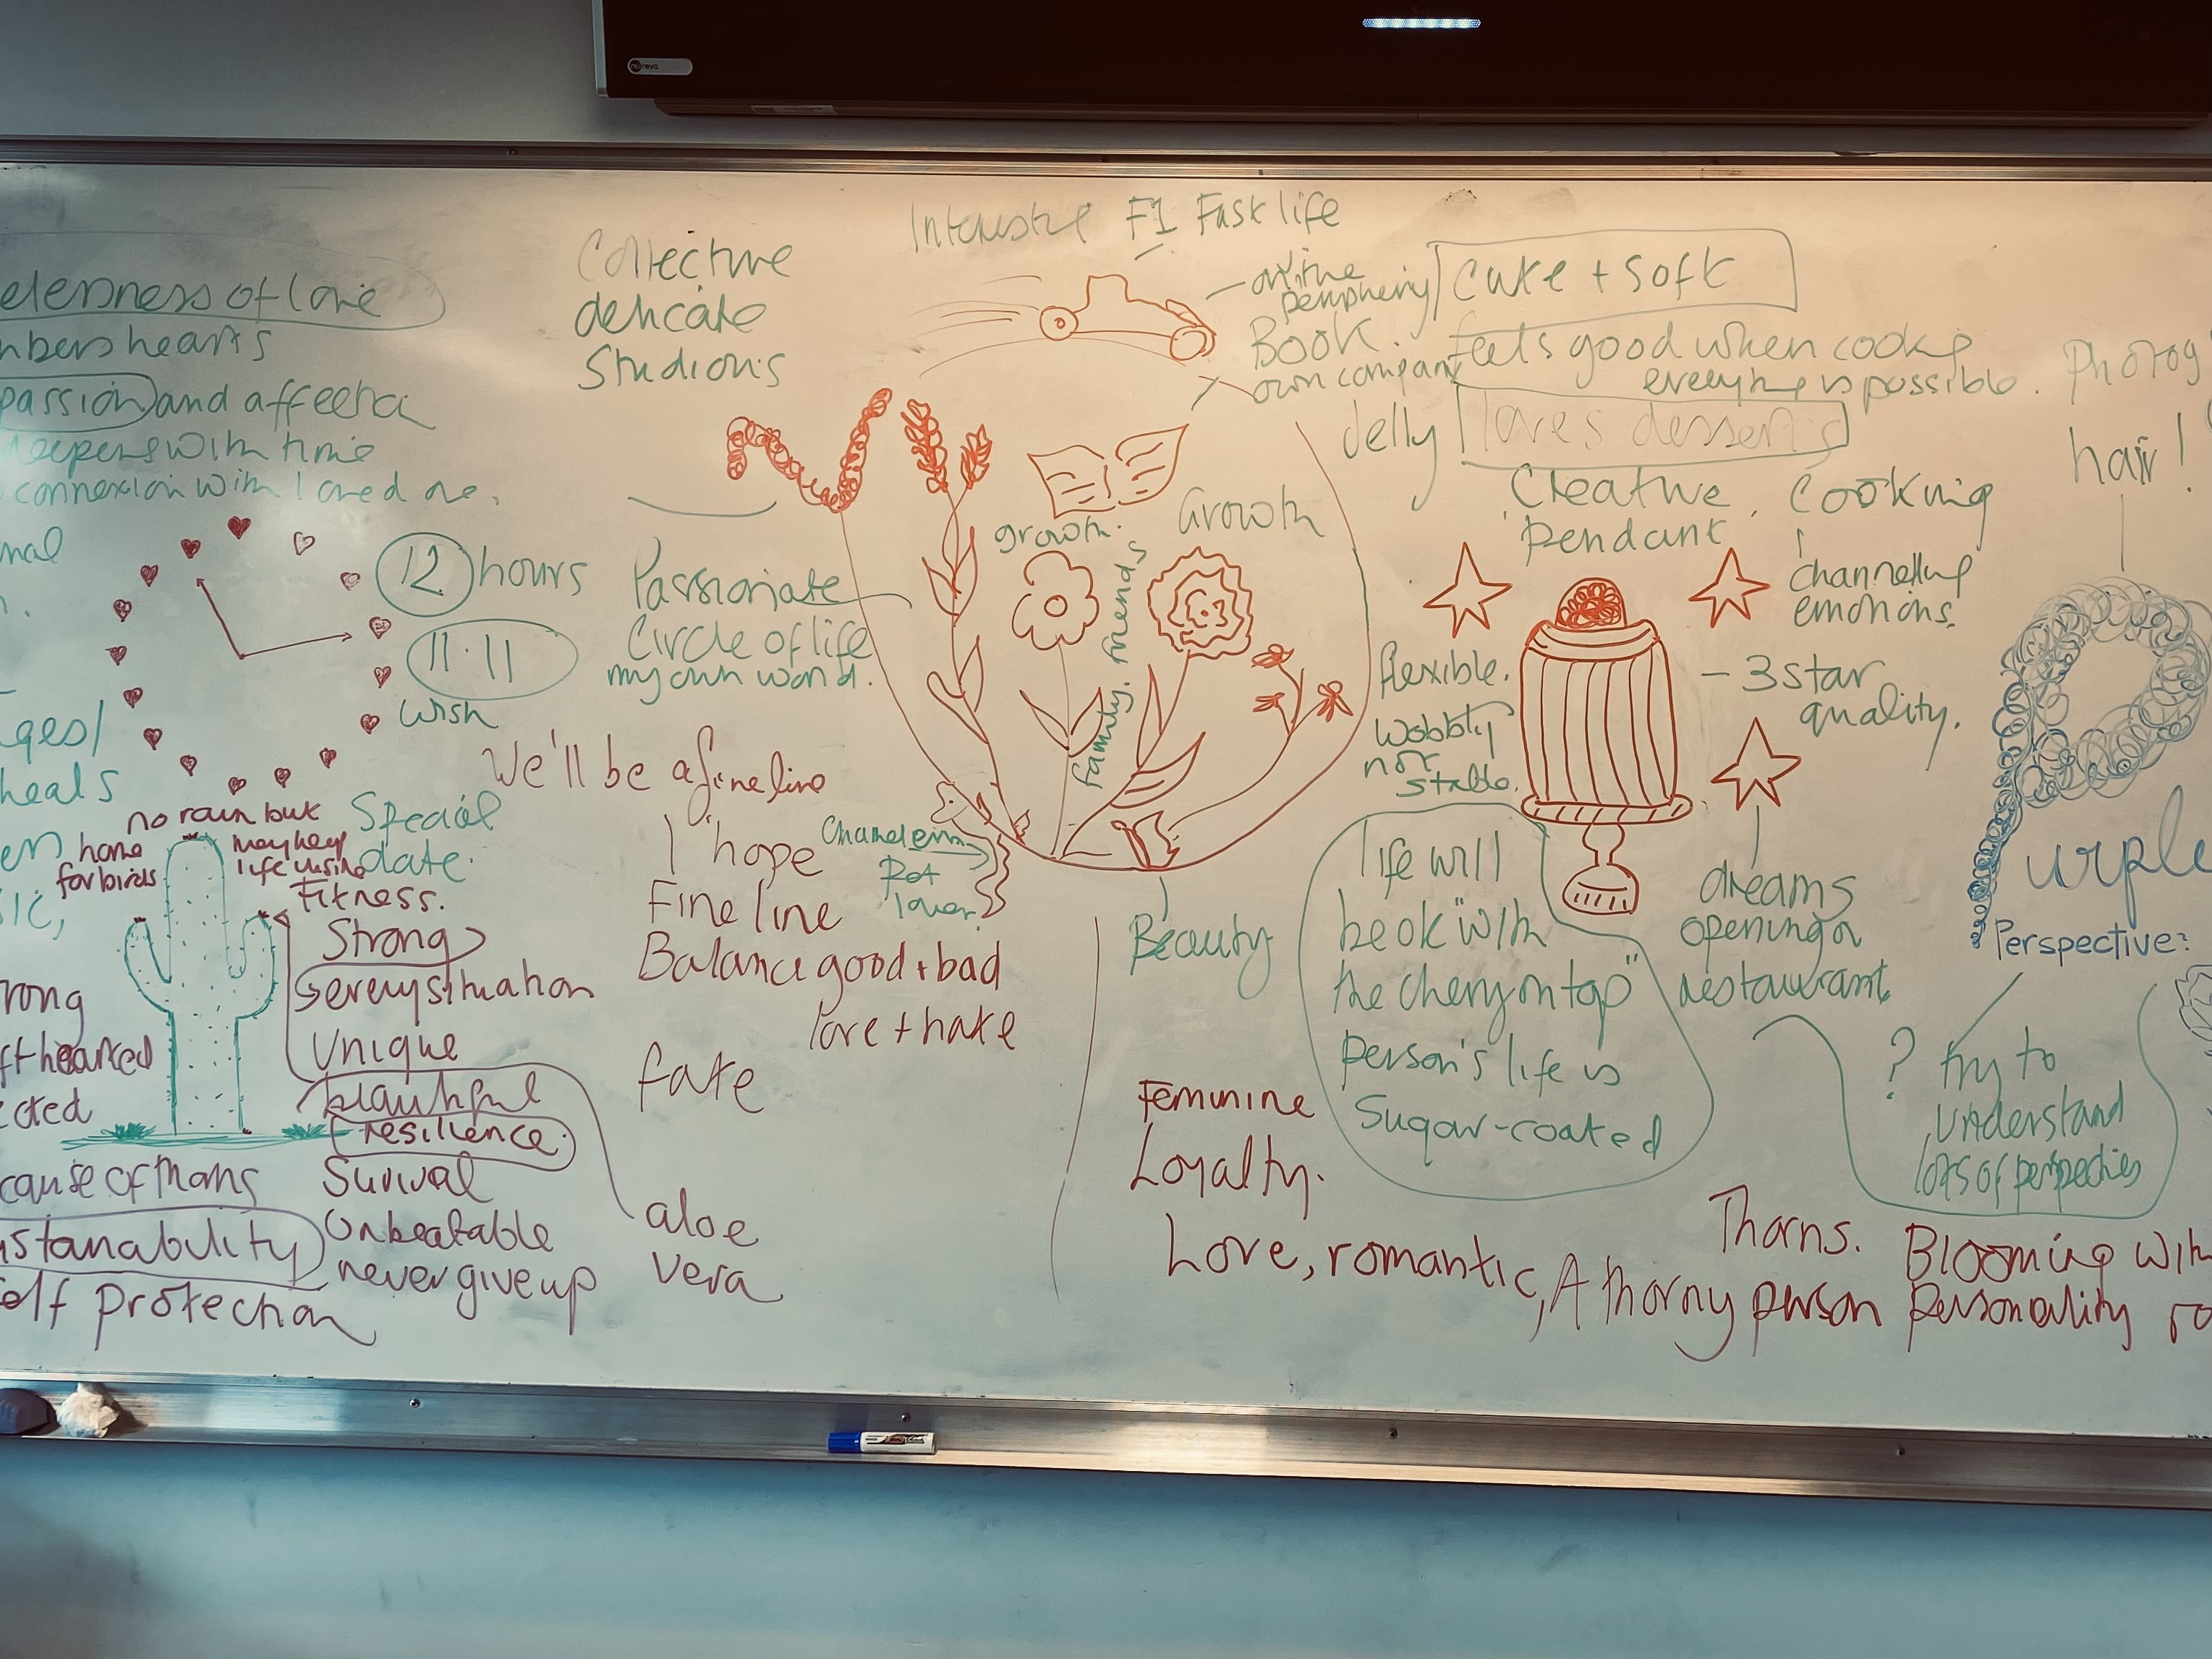 nureva
Interesting F1 Fast life
Collective
delicate
Studious
elessness of love
mbers hearts
passion and affection
deepens with time
connexion with loved one.
on the
periphery
Book.
own company
Cute + soft
feels good when cooking
everything is possible.
Jelly
loves desserts
Creative
pendant
Cooking
channelling
emotions.
Photog
hair!
growth.
Growth
family. friends
12 hours
11.11
wish
Special
date.
Passionate
Circle of life
my own world.
We'll be a fine line
I hope
Fine line
Balance good + bad
love + hate
fate
Chameleon
Pet
lover
flexible.
Wobbly
not
stable.
- 3 star
quality.
Beauty
life will
be ok "with
the cherry on top"
person's life is
Sugar-coated
dreams
opening a
restaurant.
urple
Perspective?
? try to
understand
lots of perspectives
ges/
heals
no rain but
home
for birds
may keep
life using
Fitness.
Strong
every situation
Unique
beautiful
resilience.
Survival
Unbeatable
never give up
aloe
vera
rong
ft hearted
cted
cause of thorns
ustanability
elf protection
Feminine
Loyalty.
Love, romantic, A thorny person
Thorns.
Blooming with
personality ro